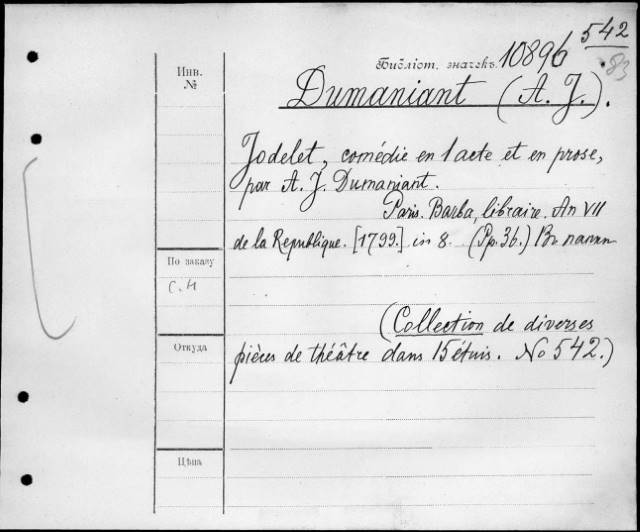 542
83
Библіот. значекъ. 10896
Инв.
№
Dumaniant (A. J.).
Jodelet, comédie en 1 acte et en prose,
par A. J. Dumaniant.
Paris. Barba, libraire. An VII
de la Republique. [1799.] in 8. (Pp. 36.) Въ папкѣ
По заказу
С. Н
(Collection de diverses
Откуда
pièces de théâtre dans 15 étuis. No 542.)
Цѣна